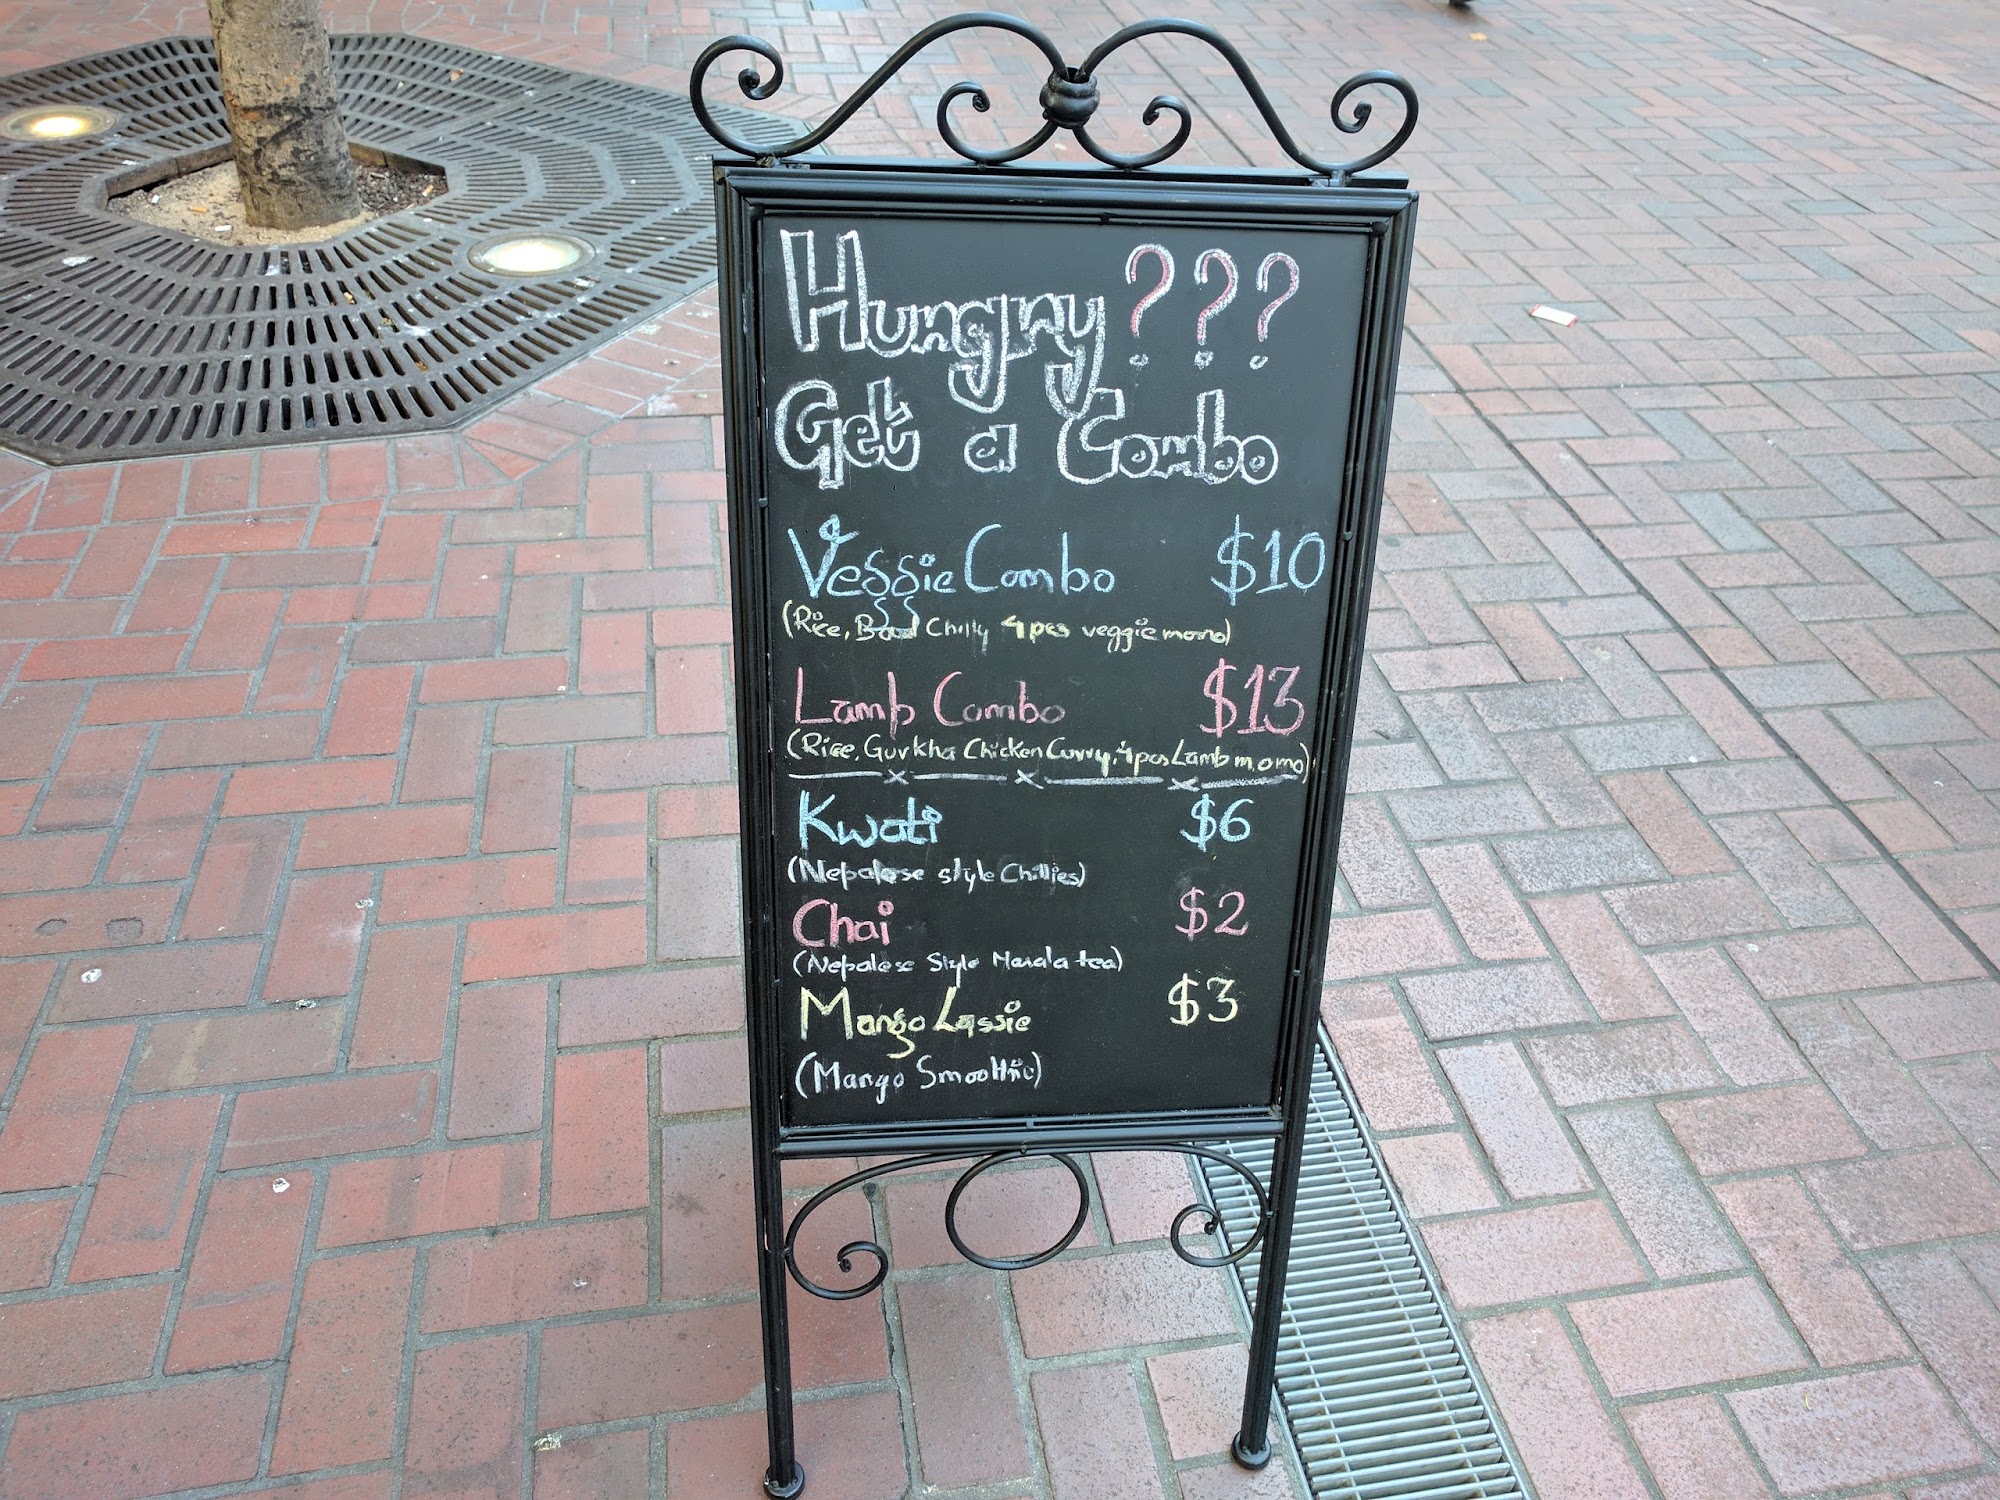 Hungry ? ? ?
Get a Combo
Veggie Combo $10
(Rice, Chilly 4 pcs veggie momo)
Lamb Combo $13
(Rice, Gurkha Chicken Curry, 4 pcs Lamb momo)
Kwati $6
(Nepalese style Chillies)
Chai $2
(Nepalese Style Masala tea)
Mango Lassie $3
(Mango Smoothie)